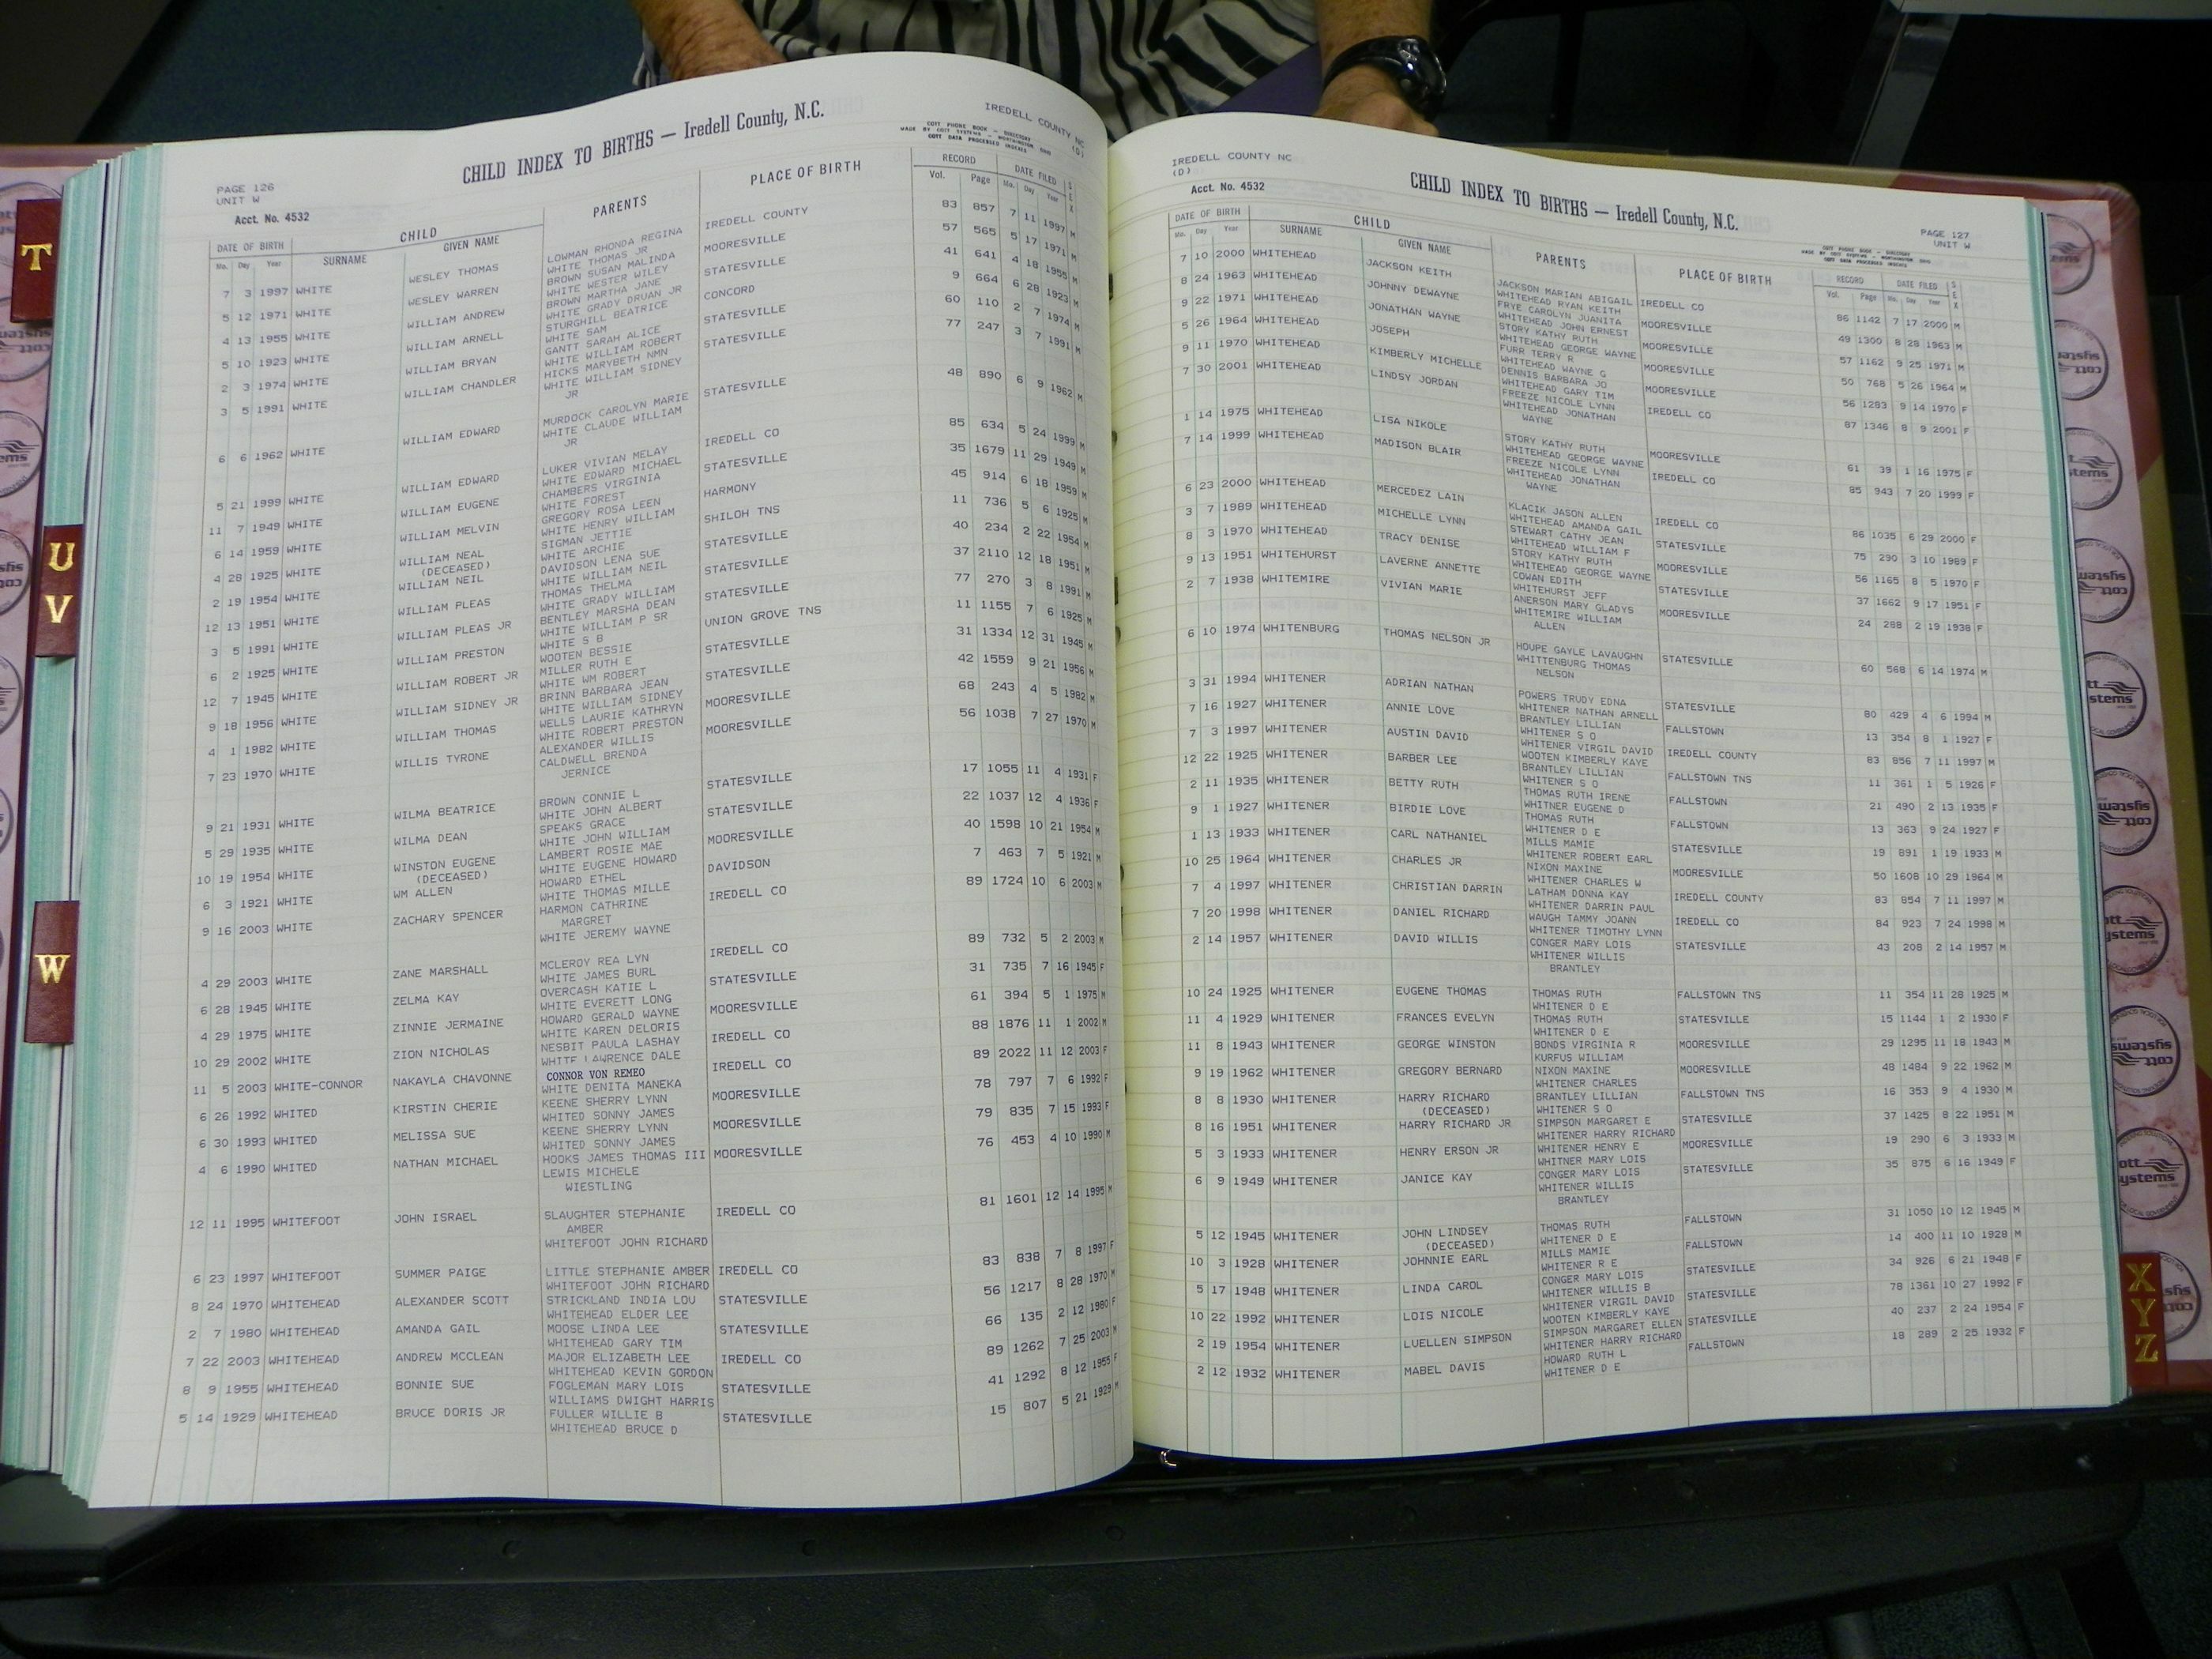 T
U
V
W
PAGE 126
UNIT W
CHILD INDEX TO BIRTHS — Iredell County, N.C.
IREDELL COUNTY NC
(D)
COTT PHONE BOOK - DIRECTORY
MADE BY COTT SYSTEMS - WORTHINGTON OHIO
COTT DATA PROCESSED INDEXES
Acct. No. 4532
DATE OF BIRTH CHILD PARENTS PLACE OF BIRTH RECORD DATE FILED SEX
Mo. Day Year SURNAME GIVEN NAME Vol. Page Mo. Day Year
7 3 1997 WHITE WESLEY THOMAS LOWMAN RHONDA REGINA IREDELL COUNTY 83 857 7 11 1997 M
WHITE THOMAS JR
5 12 1971 WHITE WESLEY WARREN BROWN SUSAN MALINDA MOORESVILLE 57 565 5 17 1971 M
WHITE WESTER WILEY
4 13 1955 WHITE WILLIAM ANDREW BROWN MARTHA JANE STATESVILLE 41 641 4 18 1955 M
WHITE GRADY DRUAN JR
5 10 1923 WHITE WILLIAM ARNELL STURGHILL BEATRICE CONCORD 9 664 6 28 1923 M
WHITE SAM
2 3 1974 WHITE WILLIAM BRYAN GANTT SARAH ALICE STATESVILLE 60 110 2 7 1974 M
WHITE WILLIAM ROBERT
3 5 1991 WHITE WILLIAM CHANDLER HICKS MARYBETH NMN STATESVILLE 77 247 3 7 1991 M
WHITE WILLIAM SIDNEY
JR
6 6 1962 WHITE WILLIAM EDWARD MURDOCK CAROLYN MARIE STATESVILLE 48 890 6 9 1962 M
WHITE CLAUDE WILLIAM
JR
5 21 1999 WHITE WILLIAM EDWARD LUKER VIVIAN MELAY IREDELL CO 85 634 5 24 1999 M
WHITE EDWARD MICHAEL
11 7 1949 WHITE WILLIAM EUGENE CHAMBERS VIRGINIA STATESVILLE 35 1679 11 29 1949 M
WHITE FOREST
6 14 1959 WHITE WILLIAM MELVIN GREGORY ROSA LEEN HARMONY 45 914 6 18 1959 M
WHITE HENRY WILLIAM
4 28 1925 WHITE WILLIAM NEAL SIGMAN JETTIE SHILOH TNS 11 736 5 6 1925 M
(DECEASED) WHITE ARCHIE
2 19 1954 WHITE WILLIAM NEIL DAVIDSON LENA SUE STATESVILLE 40 234 2 22 1954 M
WHITE WILLIAM NEIL
12 13 1951 WHITE WILLIAM PLEAS THOMAS THELMA STATESVILLE 37 2110 12 18 1951 M
WHITE GRADY WILLIAM
3 5 1991 WHITE WILLIAM PLEAS JR BENTLEY MARSHA DEAN STATESVILLE 77 270 3 8 1991 M
WHITE WILLIAM P SR
6 2 1925 WHITE WILLIAM PRESTON WOOTEN BESSIE UNION GROVE TNS 11 1155 7 6 1925 M
WHITE S B
12 7 1945 WHITE WILLIAM ROBERT JR MILLER RUTH E STATESVILLE 31 1334 12 31 1945 M
WHITE WM ROBERT
9 18 1956 WHITE WILLIAM SIDNEY JR BRINN BARBARA JEAN STATESVILLE 42 1559 9 21 1956 M
WHITE WILLIAM SIDNEY
4 1 1982 WHITE WILLIAM THOMAS WELLS LAURIE KATHRYN MOORESVILLE 68 243 4 5 1982 M
WHITE ROBERT PRESTON
7 23 1970 WHITE WILLIS TYRONE ALEXANDER WILLIS MOORESVILLE 56 1038 7 27 1970 M
CALDWELL BRENDA
JERNICE
9 21 1931 WHITE WILMA BEATRICE BROWN CONNIE L STATESVILLE 17 1055 11 4 1931 F
WHITE JOHN ALBERT
5 29 1935 WHITE WILMA DEAN SPEAKS GRACE STATESVILLE 22 1037 12 4 1936 F
WHITE JOHN WILLIAM
10 19 1954 WHITE WINSTON EUGENE LAMBERT ROSIE MAE MOORESVILLE 40 1598 10 21 1954 M
(DECEASED) WHITE EUGENE HOWARD
6 3 1921 WHITE WM ALLEN HOWARD ETHEL DAVIDSON 7 463 7 5 1921 M
WHITE THOMAS MILLE
9 16 2003 WHITE ZACHARY SPENCER HARMON CATHRINE IREDELL CO 89 1724 10 6 2003 M
MARGRET
WHITE JEREMY WAYNE
4 29 2003 WHITE ZANE MARSHALL MCLEROY REA LYN IREDELL CO 89 732 5 2 2003 M
WHITE JAMES BURL
6 28 1945 WHITE ZELMA KAY OVERCASH KATIE L STATESVILLE 31 735 7 16 1945 F
WHITE EVERETT LONG
4 29 1975 WHITE ZINNIE JERMAINE HOWARD GERALD WAYNE MOORESVILLE 61 394 5 1 1975 M
WHITE KAREN DELORIS
10 29 2002 WHITE ZION NICHOLAS NESBIT PAULA LASHAY IREDELL CO 88 1876 11 1 2002 M
WHITE LAWRENCE DALE
11 5 2003 WHITE-CONNOR NAKAYLA CHAVONNE CONNOR VON REMEO IREDELL CO 89 2022 11 12 2003 F
WHITE DENITA MANEKA
6 26 1992 WHITED KIRSTIN CHERIE KEENE SHERRY LYNN MOORESVILLE 78 797 7 6 1992 F
WHITED SONNY JAMES
6 30 1993 WHITED MELISSA SUE KEENE SHERRY LYNN MOORESVILLE 79 835 7 15 1993 F
WHITED SONNY JAMES
4 6 1990 WHITED NATHAN MICHAEL HOOKS JAMES THOMAS III MOORESVILLE 76 453 4 10 1990 M
LEWIS MICHELE
WIESTLING
12 11 1995 WHITEFOOT JOHN ISRAEL SLAUGHTER STEPHANIE IREDELL CO 81 1601 12 14 1995 M
AMBER
WHITEFOOT JOHN RICHARD
6 23 1997 WHITEFOOT SUMMER PAIGE LITTLE STEPHANIE AMBER IREDELL CO 83 838 7 8 1997 F
WHITEFOOT JOHN RICHARD
8 24 1970 WHITEHEAD ALEXANDER SCOTT STRICKLAND INDIA LOU STATESVILLE 56 1217 8 28 1970 M
WHITEHEAD ELDER LEE
2 7 1980 WHITEHEAD AMANDA GAIL MOOSE LINDA LEE STATESVILLE 66 135 2 12 1980 F
WHITEHEAD GARY TIM
7 22 2003 WHITEHEAD ANDREW MCCLEAN MAJOR ELIZABETH LEE IREDELL CO 89 1262 7 25 2003 M
WHITEHEAD KEVIN GORDON
8 9 1955 WHITEHEAD BONNIE SUE FOGLEMAN MARY LOIS STATESVILLE 41 1292 8 12 1955 F
WILLIAMS DWIGHT HARRIS
5 14 1929 WHITEHEAD BRUCE DORIS JR FULLER WILLIE B STATESVILLE 15 807 5 21 1929 M
WHITEHEAD BRUCE D
IREDELL COUNTY NC
(D)
Acct. No. 4532
CHILD INDEX TO BIRTHS — Iredell County, N.C.
PAGE 127
UNIT W
COTT PHONE BOOK - DIRECTORY
MADE BY COTT SYSTEMS - WORTHINGTON OHIO
COTT DATA PROCESSED INDEXES
DATE OF BIRTH CHILD PARENTS PLACE OF BIRTH RECORD DATE FILED SEX
Mo. Day Year SURNAME GIVEN NAME Vol. Page Mo. Day Year
7 10 2000 WHITEHEAD JACKSON KEITH JACKSON MARIAN ABIGAIL IREDELL CO 86 1142 7 17 2000 M
WHITEHEAD RYAN KEITH
8 24 1963 WHITEHEAD JOHNNY DEWAYNE FRYE CAROLYN JUANITA MOORESVILLE 49 1300 8 28 1963 M
WHITEHEAD JOHN ERNEST
9 22 1971 WHITEHEAD JONATHAN WAYNE STORY KATHY RUTH MOORESVILLE 57 1162 9 25 1971 M
WHITEHEAD GEORGE WAYNE
5 26 1964 WHITEHEAD JOSEPH FURR TERRY R MOORESVILLE 50 768 5 26 1964 M
WHITEHEAD WAYNE G
9 11 1970 WHITEHEAD KIMBERLY MICHELLE DENNIS BARBARA JO MOORESVILLE 56 1283 9 14 1970 F
WHITEHEAD GARY TIM
7 30 2001 WHITEHEAD LINDSY JORDAN FREEZE NICOLE LYNN IREDELL CO 87 1346 8 9 2001 F
WHITEHEAD JONATHAN
WAYNE
1 14 1975 WHITEHEAD LISA NIKOLE STORY KATHY RUTH MOORESVILLE 61 39 1 16 1975 F
WHITEHEAD GEORGE WAYNE
7 14 1999 WHITEHEAD MADISON BLAIR FREEZE NICOLE LYNN IREDELL CO 85 943 7 20 1999 F
WHITEHEAD JONATHAN
WAYNE
6 23 2000 WHITEHEAD MERCEDEZ LAIN KLACIK JASON ALLEN IREDELL CO 86 1035 6 29 2000 F
WHITEHEAD AMANDA GAIL
3 7 1989 WHITEHEAD MICHELLE LYNN STEWART CATHY JEAN STATESVILLE 75 290 3 10 1989 F
WHITEHEAD WILLIAM F
8 3 1970 WHITEHEAD TRACY DENISE STORY KATHY RUTH MOORESVILLE 56 1165 8 5 1970 F
WHITEHEAD GEORGE WAYNE
9 13 1951 WHITEHURST LAVERNE ANNETTE COWAN EDITH STATESVILLE 37 1662 9 17 1951 F
WHITEHURST JEFF
2 7 1938 WHITEMIRE VIVIAN MARIE ANERSON MARY GLADYS MOORESVILLE 24 288 2 19 1938 F
WHITEMIRE WILLIAM
ALLEN
6 10 1974 WHITENBURG THOMAS NELSON JR HOUPE GAYLE LAVAUGHN STATESVILLE 60 568 6 14 1974 M
WHITTENBURG THOMAS
NELSON
3 31 1994 WHITENER ADRIAN NATHAN POWERS TRUDY EDNA STATESVILLE 80 429 4 6 1994 M
WHITENER NATHAN ARNELL
7 16 1927 WHITENER ANNIE LOVE BRANTLEY LILLIAN FALLSTOWN 13 354 8 1 1927 F
WHITENER S O
7 3 1997 WHITENER AUSTIN DAVID WHITENER VIRGIL DAVID IREDELL COUNTY 83 856 7 11 1997 M
WOOTEN KIMBERLY KAYE
12 22 1925 WHITENER BARBER LEE BRANTLEY LILLIAN FALLSTOWN TNS 11 361 1 5 1926 F
WHITENER S O
2 11 1935 WHITENER BETTY RUTH THOMAS RUTH IRENE FALLSTOWN 21 490 2 13 1935 F
WHITNER EUGENE D
9 1 1927 WHITENER BIRDIE LOVE THOMAS RUTH FALLSTOWN 13 363 9 24 1927 F
WHITENER D E
1 13 1933 WHITENER CARL NATHANIEL MILLS MAMIE STATESVILLE 19 891 1 19 1933 M
WHITENER ROBERT EARL
10 25 1964 WHITENER CHARLES JR NIXON MAXINE MOORESVILLE 50 1608 10 29 1964 M
WHITENER CHARLES W
7 4 1997 WHITENER CHRISTIAN DARRIN LATHAM DONNA KAY IREDELL COUNTY 83 854 7 11 1997 M
WHITENER DARRIN PAUL
7 20 1998 WHITENER DANIEL RICHARD WAUGH TAMMY JOANN IREDELL CO 84 923 7 24 1998 M
WHITENER TIMOTHY LYNN
2 14 1957 WHITENER DAVID WILLIS CONGER MARY LOIS STATESVILLE 43 208 2 14 1957 M
WHITENER WILLIS
BRANTLEY
10 24 1925 WHITENER EUGENE THOMAS THOMAS RUTH FALLSTOWN TNS 11 354 11 28 1925 M
WHITENER D E
11 4 1929 WHITENER FRANCES EVELYN THOMAS RUTH STATESVILLE 15 1144 1 2 1930 F
WHITENER D E
11 8 1943 WHITENER GEORGE WINSTON BONDS VIRGINIA R MOORESVILLE 29 1295 11 18 1943 M
KURFUS WILLIAM
9 19 1962 WHITENER GREGORY BERNARD NIXON MAXINE MOORESVILLE 48 1484 9 22 1962 M
WHITENER CHARLES
8 8 1930 WHITENER HARRY RICHARD BRANTLEY LILLIAN FALLSTOWN TNS 16 353 9 4 1930 M
(DECEASED) WHITENER S O
8 16 1951 WHITENER HARRY RICHARD JR SIMPSON MARGARET E STATESVILLE 37 1425 8 22 1951 M
WHITENER HARRY RICHARD
5 3 1933 WHITENER HENRY ERSON JR WHITENER HENRY E MOORESVILLE 19 290 6 3 1933 M
WHITNER MARY LOIS
6 9 1949 WHITENER JANICE KAY CONGER MARY LOIS STATESVILLE 35 875 6 16 1949 F
WHITENER WILLIS
BRANTLEY
5 12 1945 WHITENER JOHN LINDSEY THOMAS RUTH FALLSTOWN 31 1050 10 12 1945 M
(DECEASED) WHITENER D E
10 3 1928 WHITENER JOHNNIE EARL MILLS MAMIE FALLSTOWN 14 400 11 10 1928 M
WHITENER R E
5 17 1948 WHITENER LINDA CAROL CONGER MARY LOIS STATESVILLE 34 926 6 21 1948 F
WHITENER WILLIS B
10 22 1992 WHITENER LOIS NICOLE WHITENER VIRGIL DAVID STATESVILLE 78 1361 10 27 1992 F
WOOTEN KIMBERLY KAYE
2 19 1954 WHITENER LUELLEN SIMPSON SIMPSON MARGARET ELLEN STATESVILLE 40 237 2 24 1954 F
WHITENER HARRY RICHARD
2 12 1932 WHITENER MABEL DAVIS HOWARD RUTH L FALLSTOWN 18 289 2 25 1932 F
WHITENER D E
X
Y
Z